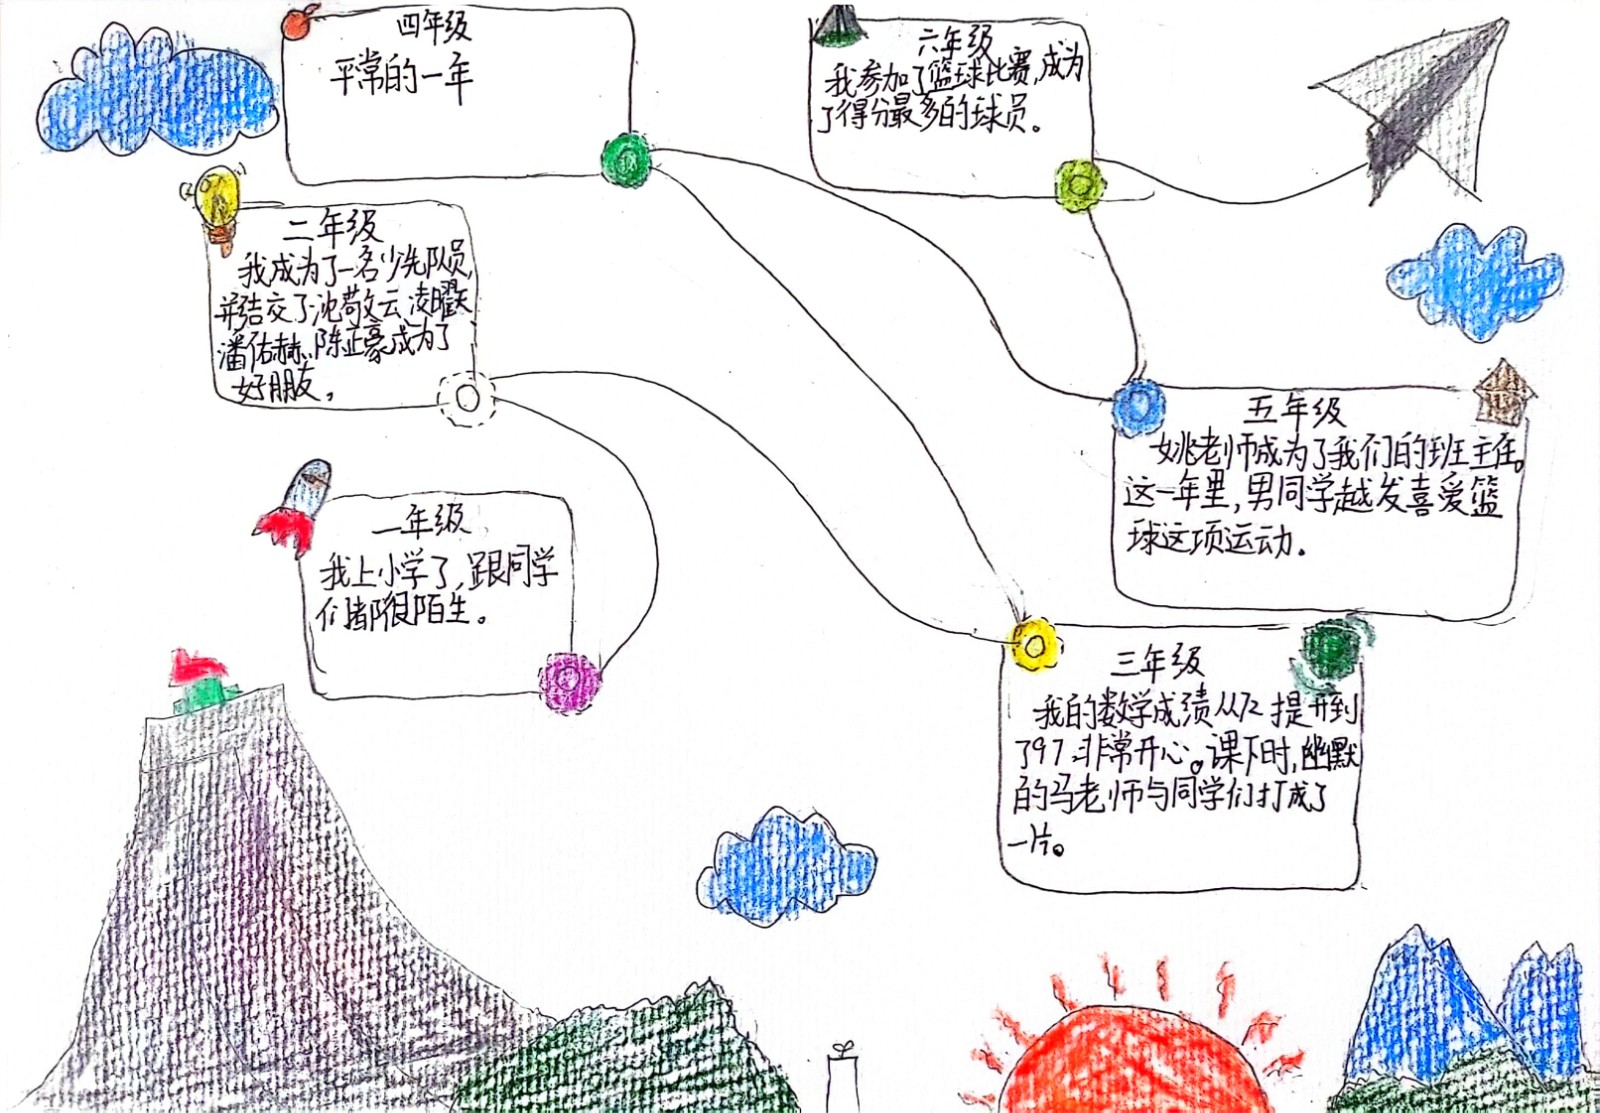 四年级
平常的一年
六年级
我参加了篮球比赛,成为
了得分最多的球员。
二年级
我成为了一名少先队员,
并结交了沈敬云、凌曜天
潘佑赫、陈正豪成为了
好朋友。
五年级
姚老师成为了我们的班主任。
这一年里,男同学越发喜爱篮
球这项运动.
一年级
我上小学了,跟同学
们都很陌生。
三年级
我的数学成绩从72提升到
了97,非常开心。课下时,幽默
的马老师与同学们打成了
一片。